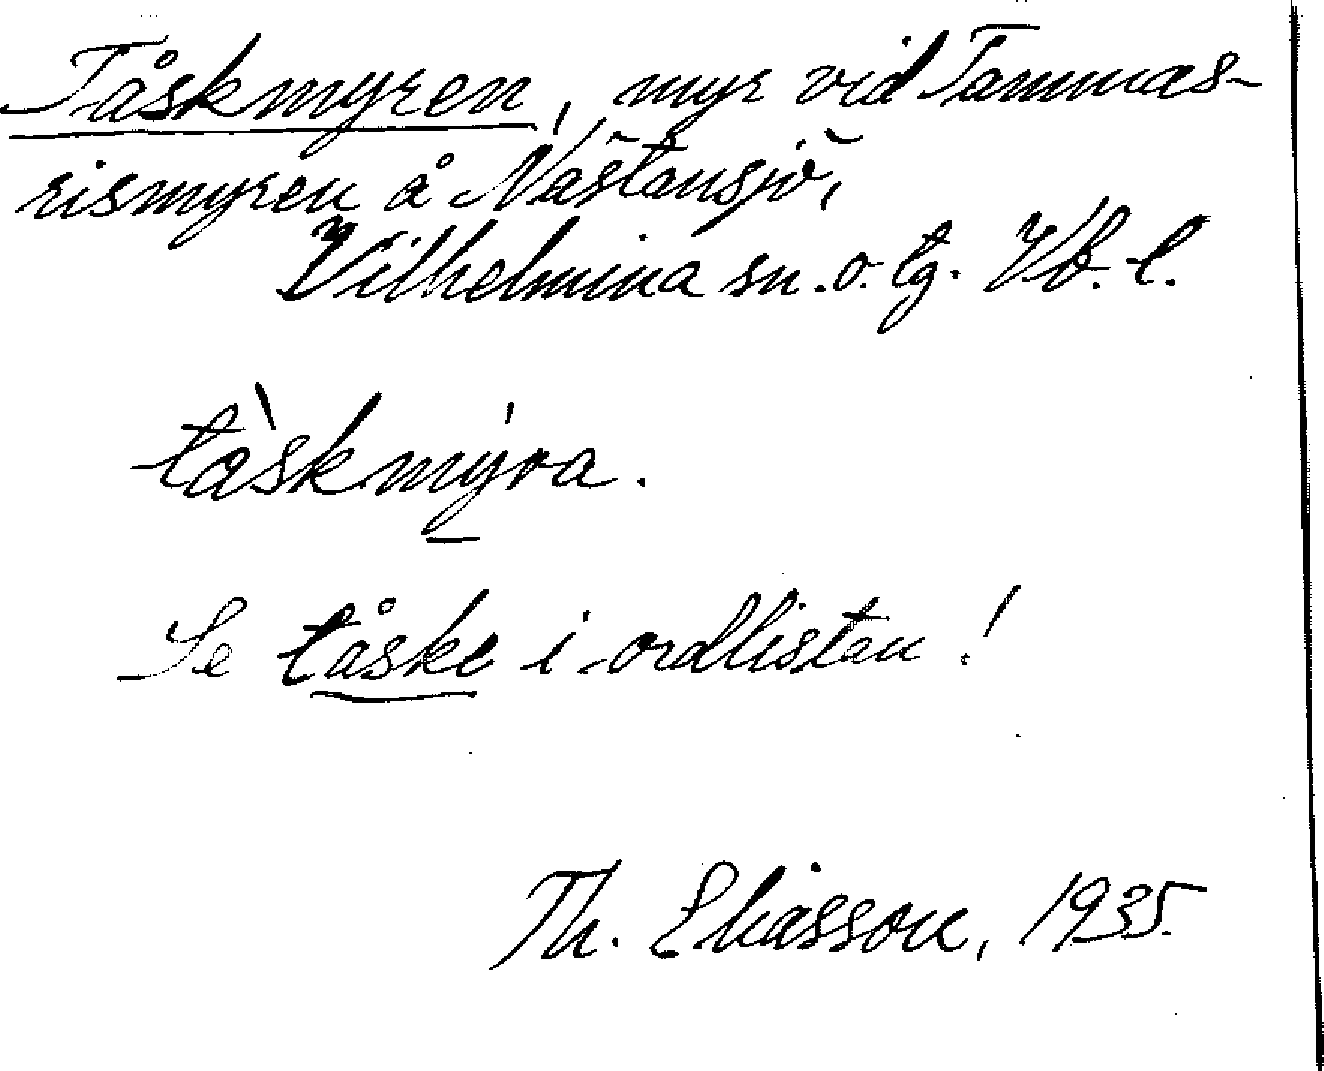 Tåskmyren, myr vid Tammas-
rismyren å Nästansjö,
Vilhelmina sn. o. tg. Vb. l.
tàskmy̱ra.
Se tåske i ordlistan!
Th. Eliasson, 1935.